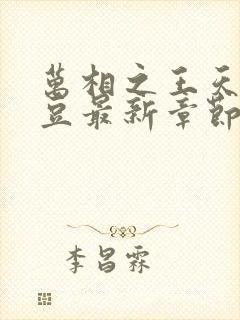 萬相之王天
豆最新章節
李昌霖